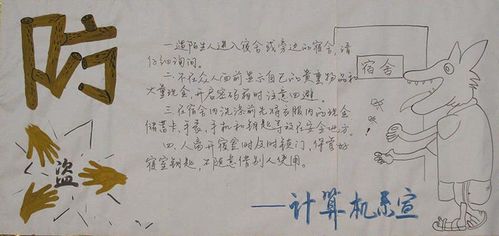 防
盗
一.遇陌生人进入宿舍或旁边的宿舍,请
仔细询问。
二.不在众人面前显示自己的贵重物品和
大量现金,开启密码箱时注意回避。
三.在宿舍内洗漱前先将衣服内的现金
储蓄卡、手表、手机和钥匙等放在安全地方。
四、人离开宿舍时及时锁门,保管好
宿舍钥匙,不随意借别人使用。
宿舍
——计算机系宣